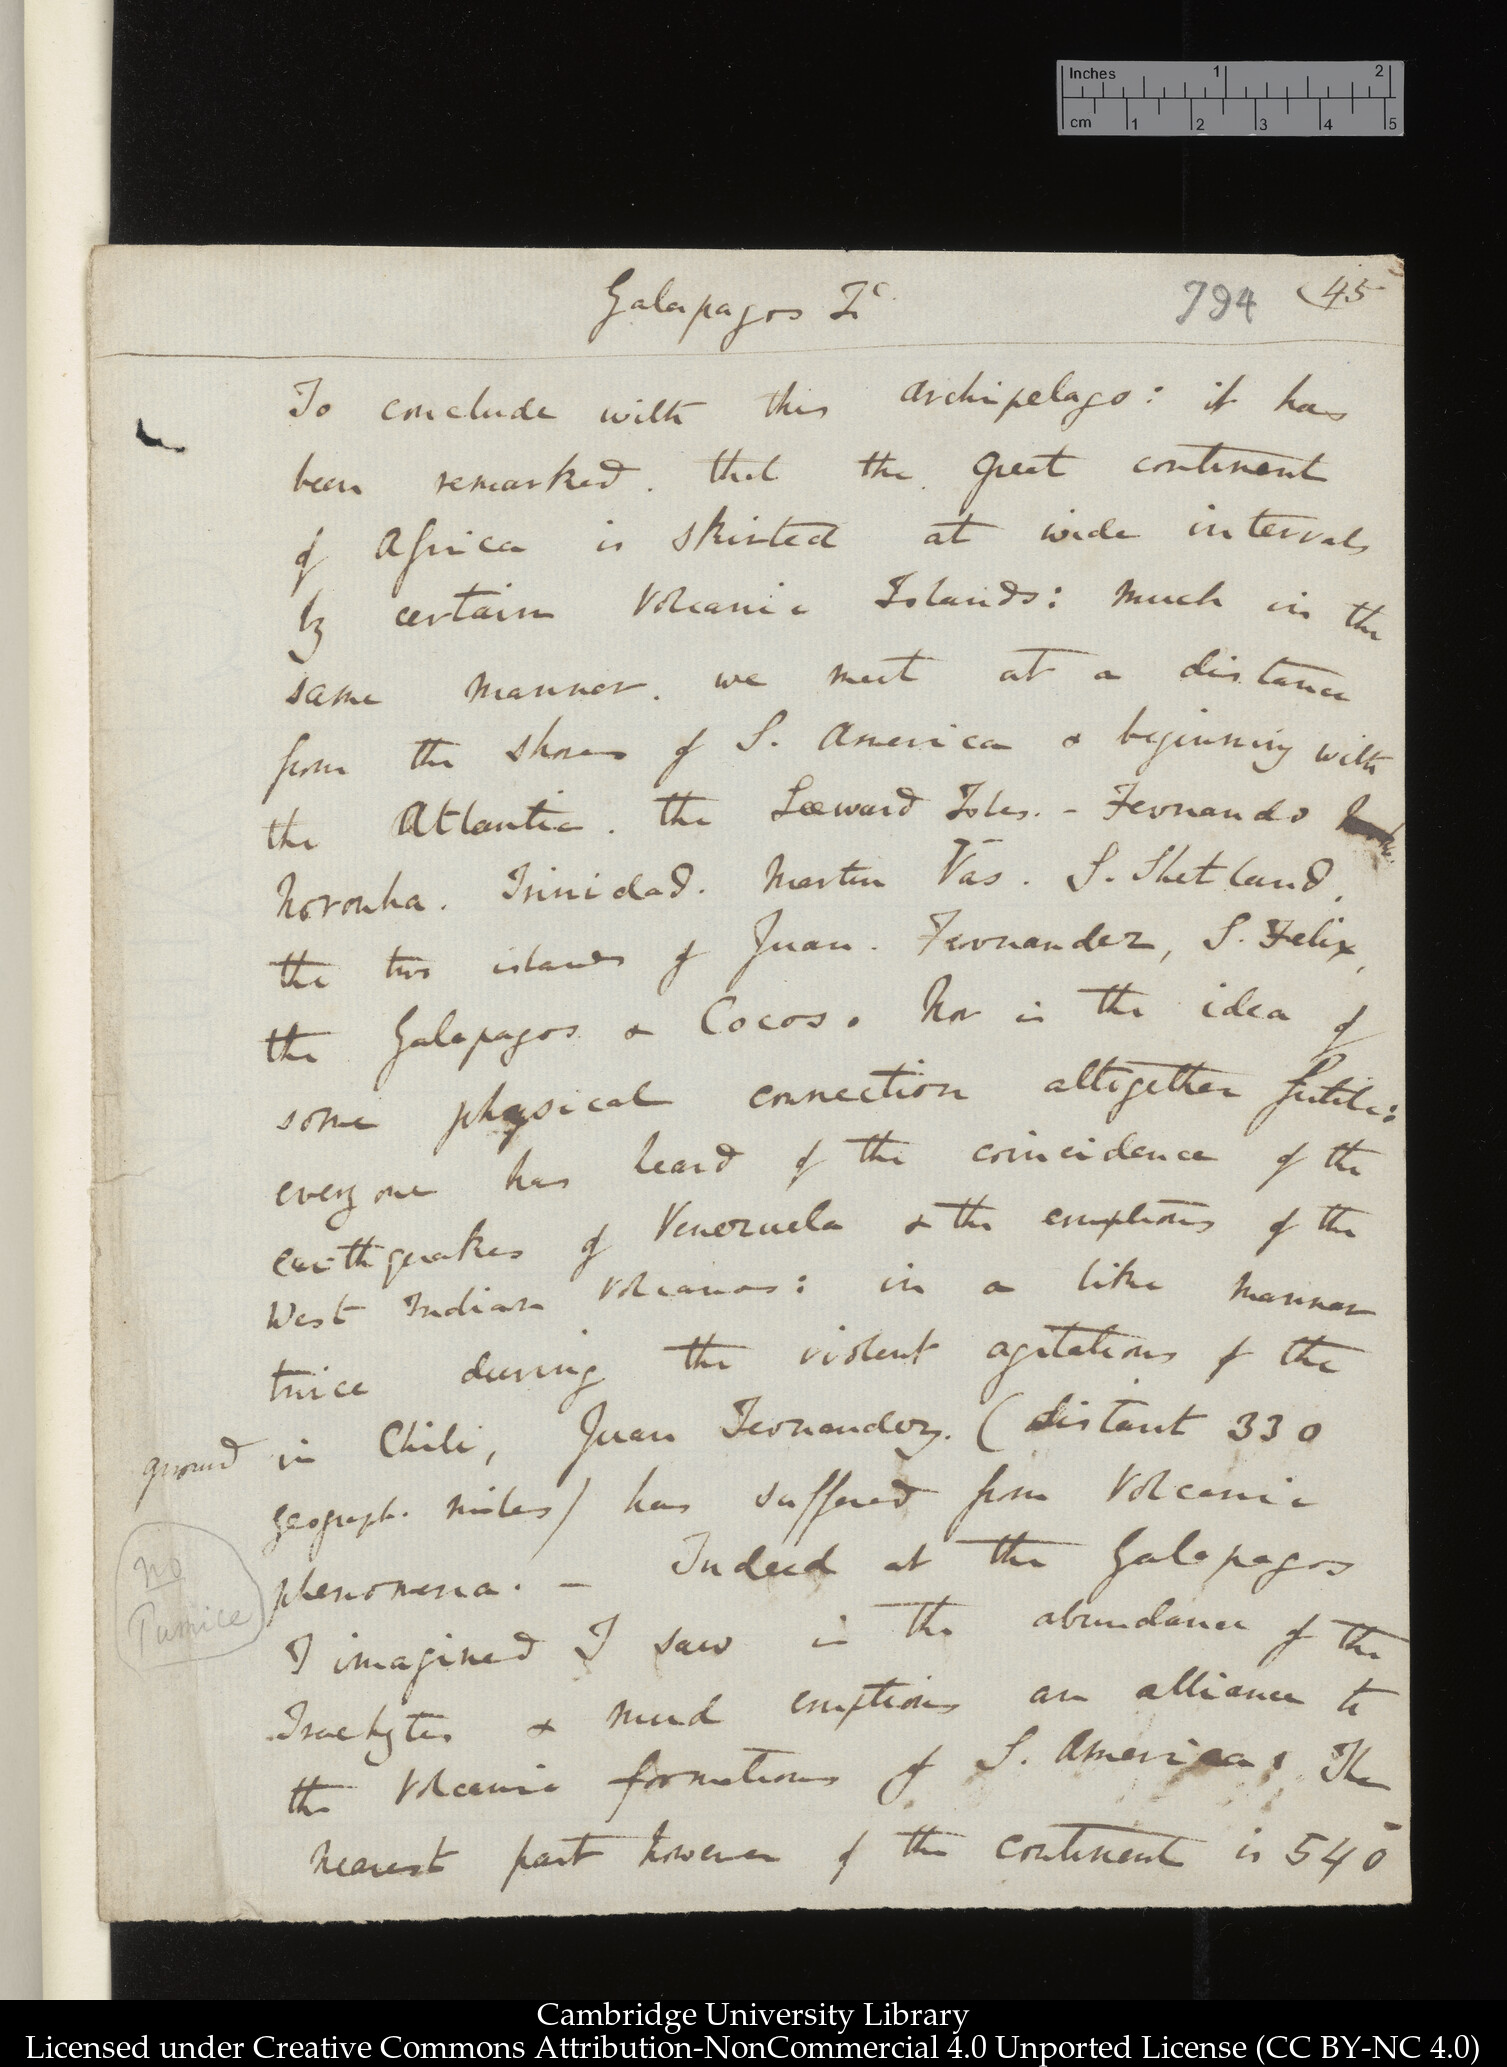 Inches 1 2
cm 1 2 3 4 5
Galapagos Is 794 (45
To conclude with this archipelago: it has
been remarked. that the great continent
of Africa is skirted at wide intervals
by certain Volcanic Islands: much in the
same manner. we meet at a distance
from the shores of S. America & beginning with
the Atlantic. the Leeward Isles. - Fernando
Noronha. Trinidad. Martin Vas. S. Shetland,
the two islands of Juan. Fernandez, S. Felix,
the Galapagos & Cocos. Nor is the idea of
some physical connection altogether futile:
every one has heard of the coincidence of the
earthquakes of Venezuela & the eruptions of the
West Indian Volcanos: in a like manner
twice during the violent agitations of the
ground in Chili, Juan Fernandez. (distant 330
geograph. miles) has suffered from Volcanic
phenomena. - Indeed at the Galapagos
no
Pumice
I imagined I saw in the abundance of the
Trachytes & mud eruptions an alliance to
the Volcanic formations of S. America: The
nearest part however of the continent is 540
Cambridge University Library
Licensed under Creative Commons Attribution-NonCommercial 4.0 Unported License (CC BY-NC 4.0)